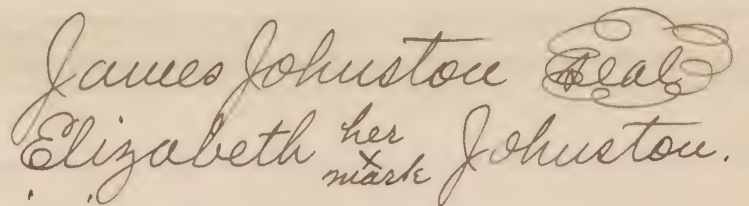 James Johnston Seal
Elizabeth her x mark Johnston.